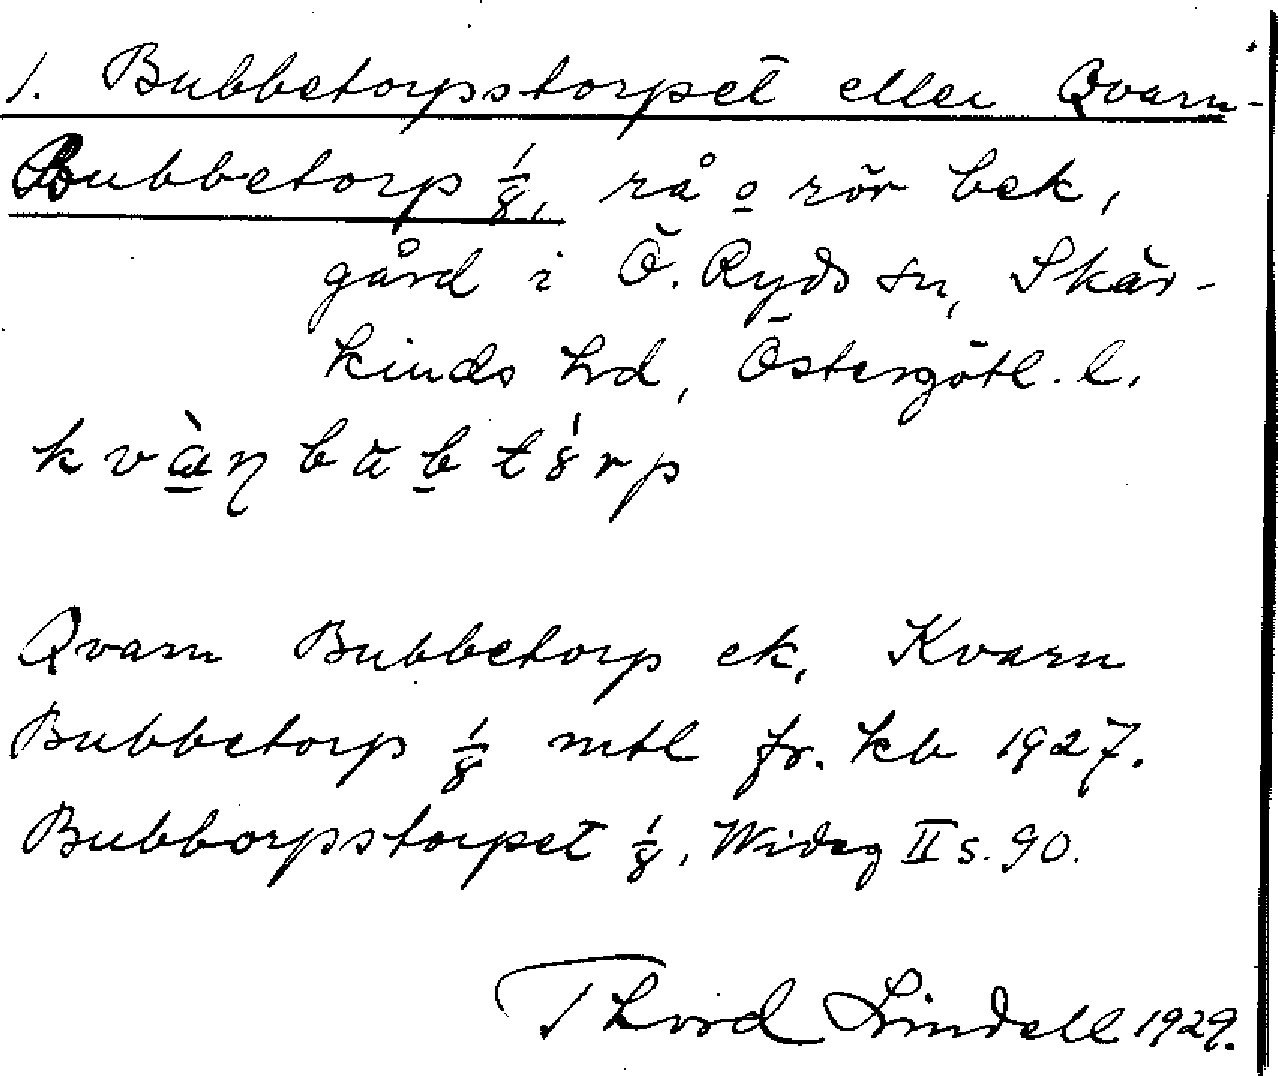 1. Bubbetorpstorpet eller Qvarn-
Bubbetorp 1/8, rå o rör bek,
gård i Ö. Ryds sn, Skär-
kinds hd, Östergötl. l.
Qvarn Bubbetorp ek, Kvarn
Bubbetorp 1/8 mtl fr. kb 1927.
Bubborpstorpet 1/8, Wideg II s. 90.
Thord Lindell 1929.